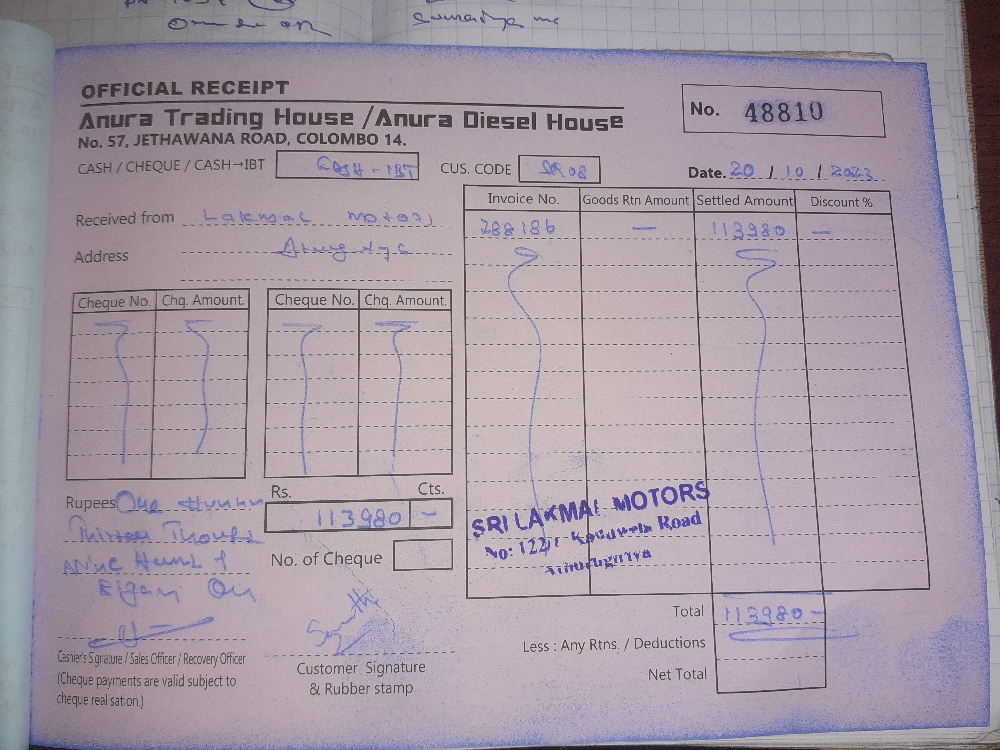 OFFICIAL RECEIPT
Anura Trading House /Anura Diesel House
No. 57, JETHAWANA ROAD, COLOMBO 14.
No. 48810
CASH / CHEQUE / CASH→IBT CASH - IBT CUS. CODE SR 08 Date. 20 / 10 / 2023
Received from Lakmal Motors
Address
Invoice No. Goods Rtn Amount Settled Amount Discount %
288186 — 113980 —
Cheque No. Chq. Amount. Cheque No. Chq. Amount.
Rupees One
Thousand
Rs. Cts.
113980 -
No. of Cheque
SRI LAKMAL MOTORS
No: 122/ Kaduwela Road
Total 113980 -
Less : Any Rtns. / Deductions
Net Total
Cashier's Signature / Sales Officer / Recovery Officer
(Cheque payments are valid subject to
cheque realisation.)
Customer Signature
& Rubber stamp